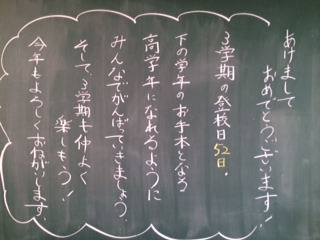 あけまして
おめでとうございます!
3学期の登校日52日。
下の学年のお手本となる
高学年になれるように
みんなでがんばっていきましょう。
そして、3学期も仲よく
楽しもう!
今年もよろしくおねがいします。